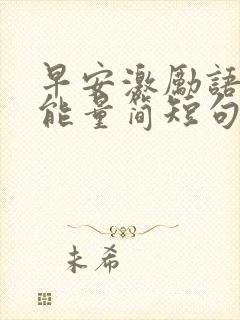 早安激勵語
能量简短句
未希